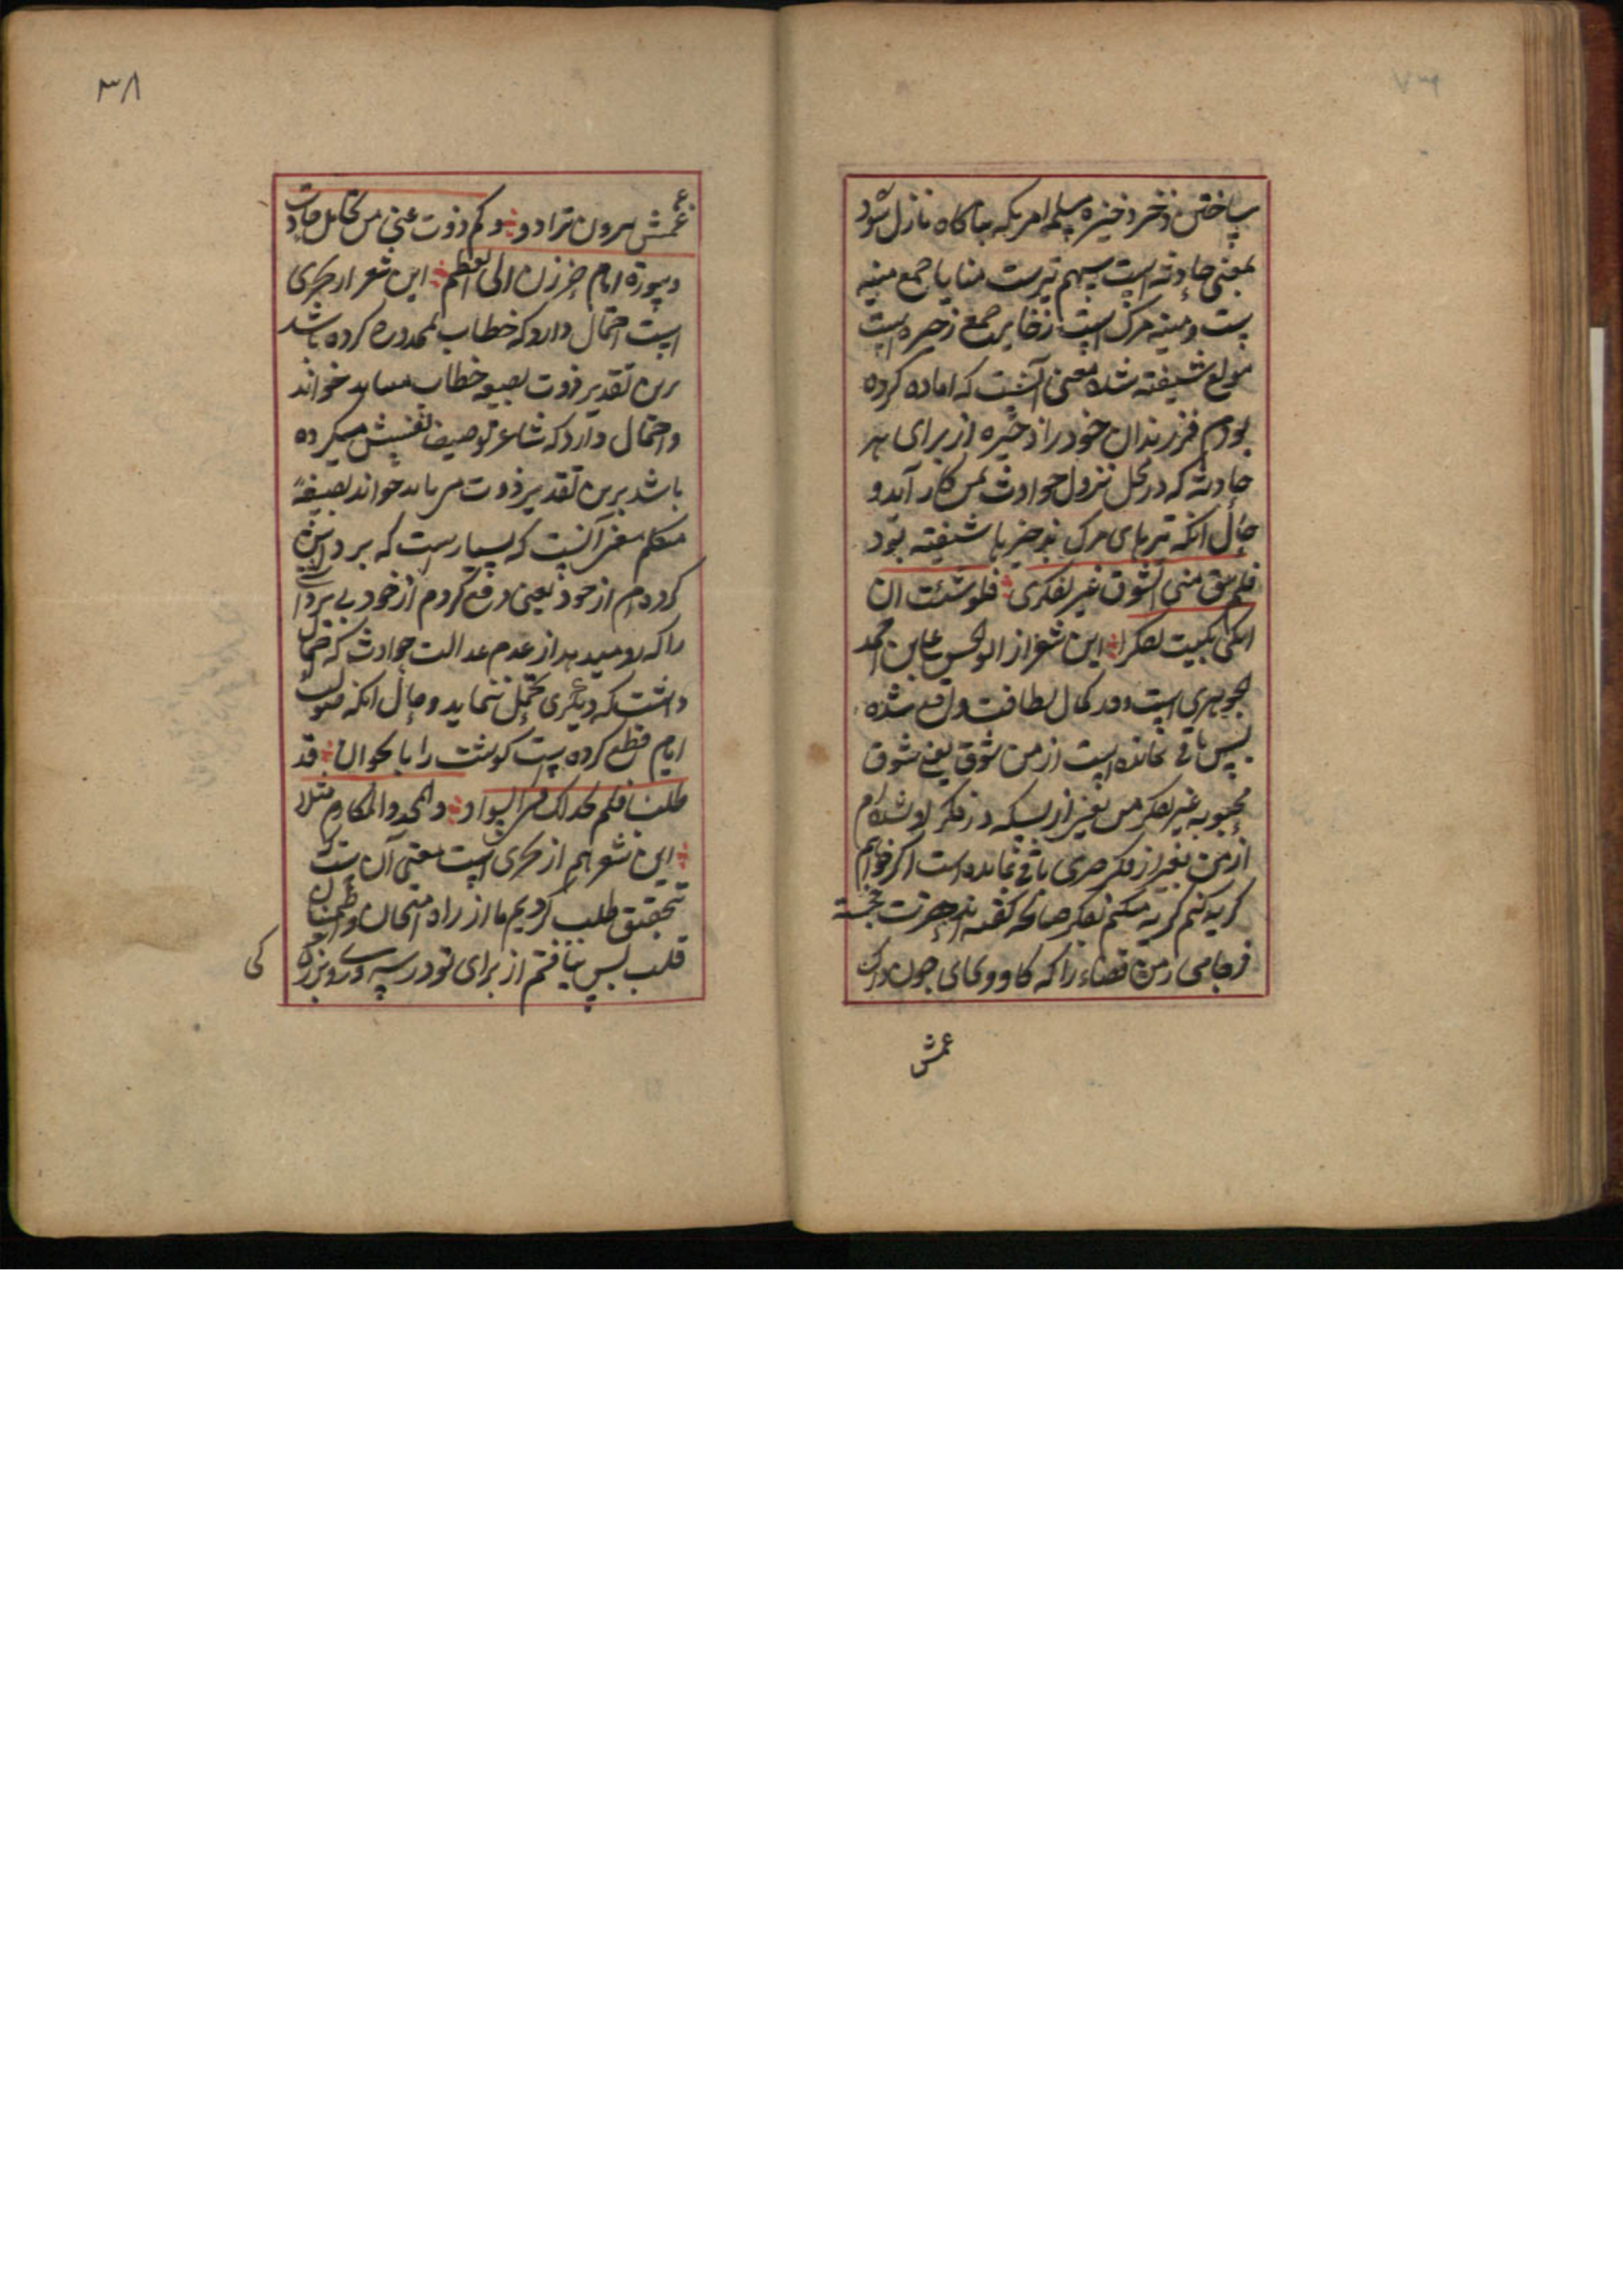 ۳۷
ساختن ذخر ذخیره ملمه امریکه بناکاه نازل شود
بمعنی حادثه است سهم تیرست منایا جمع منیه
ست و منیه مرک است ذخایر جمع ذخیره است
مولع شیفته شده معنی آنست که اماده کرده
بودم فرزندان خود را ذخیره از برای هر
حادثه که در محل نزول حوادث بمن کار آید و
حال انکه تیرهای مرک بذخیرها شیفته بود
فلم یبق منی الشوق غیر تفکری فلو شئت ان
ابکی بکیت تفکرا این شعر از ابو الحسن علی بن احمد
جوهری است و در کمال لطافت واقع شده
پس باقی نمانده است از من شوق یعنی شوق
محبوبه غیر تفکر من یعنی از بسکه در فکر او شده‌ام
از من بغیر از فکر چیزی باقی نمانده است اگر خواهم
کریه کنم کریه میکنم تفکر چنانچه کفته اند حیرت خجسته
را که کاو وی بجای خون
عمش
۳۸
غمش برون تراود و کم ذدت عنی من تحامل حادث
وسورة ایام حززن الی العظم این شعر از بحتری
است احتمال دارد که خطاب بممدوح کرده باشد
برین تقدیر ذدت بصیغه خطاب میباید خواند
و احتمال دارد که شاعر توصیف نفسش میکرده
باشد برین تقدیر ذدت می باید خواند بصیغهٔ
متکلم معنی آنست که بسیارست که
کرده‌ام از خود یعنی دفع کردم از خود
را که رو میدهد از عدم عدالت حوادث که
داشت که دیگری تحمل ننماید و حال انکه صولت
ایام قطع کرده ست کوشت را باستخوان قد
طلبنا فلم نجد لک فی السؤدد والمجد والمکارم مثلا
این شعر هم از بحتری است معنی آن ست که
بتحقیق طلب کردیم ما از راه امتحان و اطمینان
قلب پس نیافتیم از برای تو در سروری و بزرگی
کی